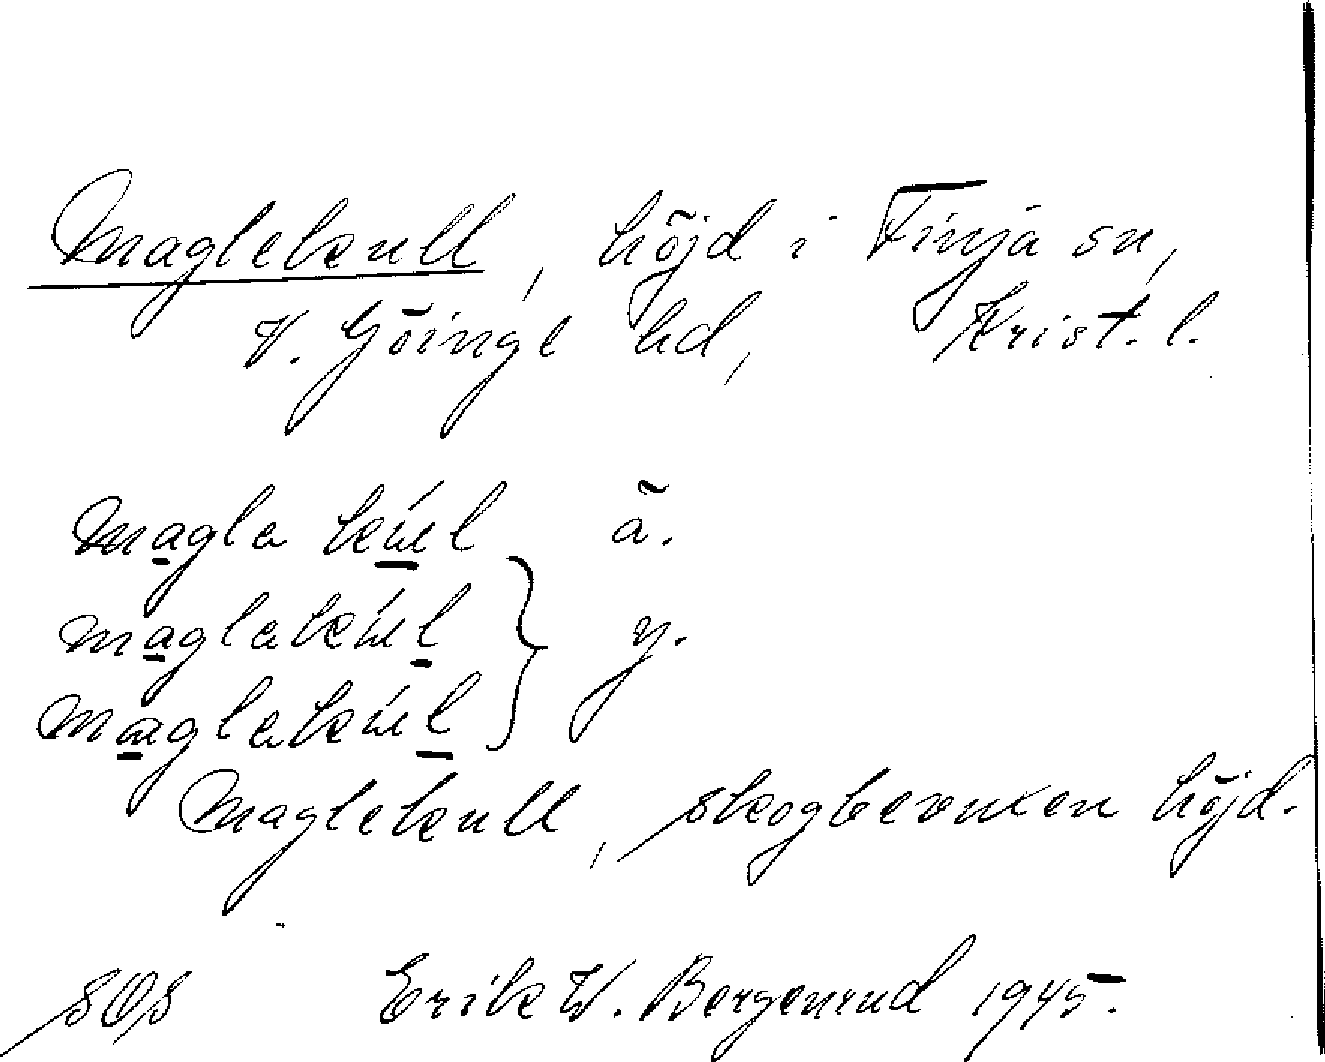 Maglekull, höjd i Finja sn,
V. Göinge hd, Krist. l.
magla kul ä.
maglakul } y.
maglakul
Maglekull, skogbevuxen höjd.
SOS Erik W. Bergenrud 1945.